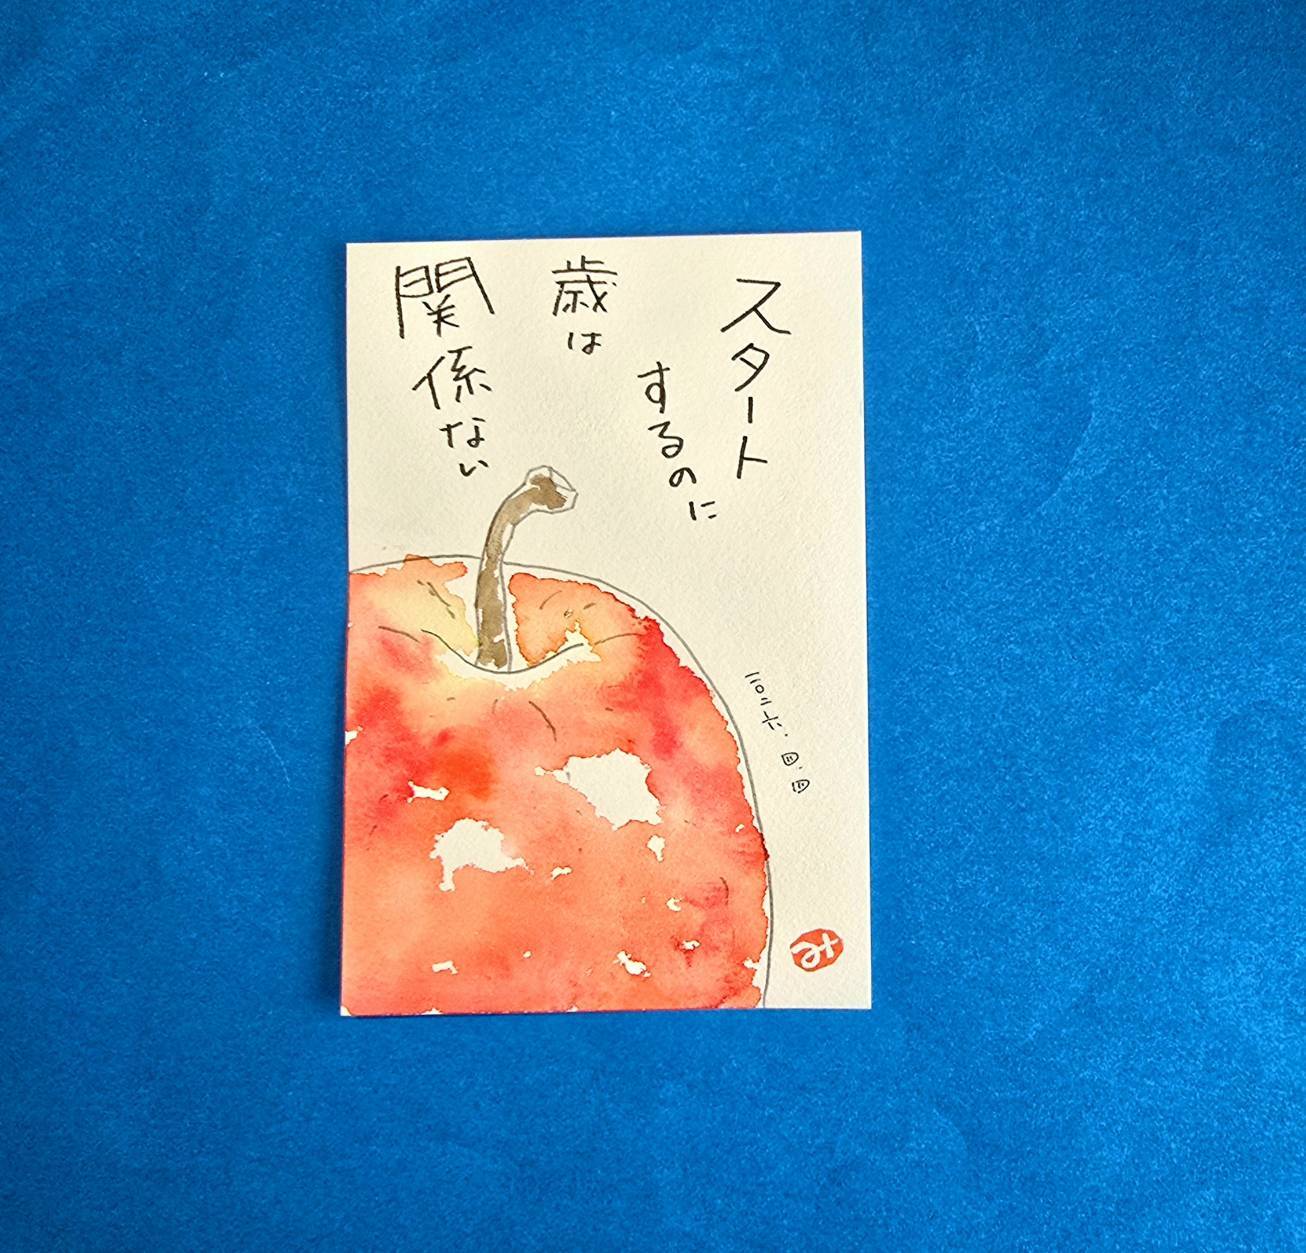 スタート
するのに
歳は
関係ない
二〇二六.四.四
み